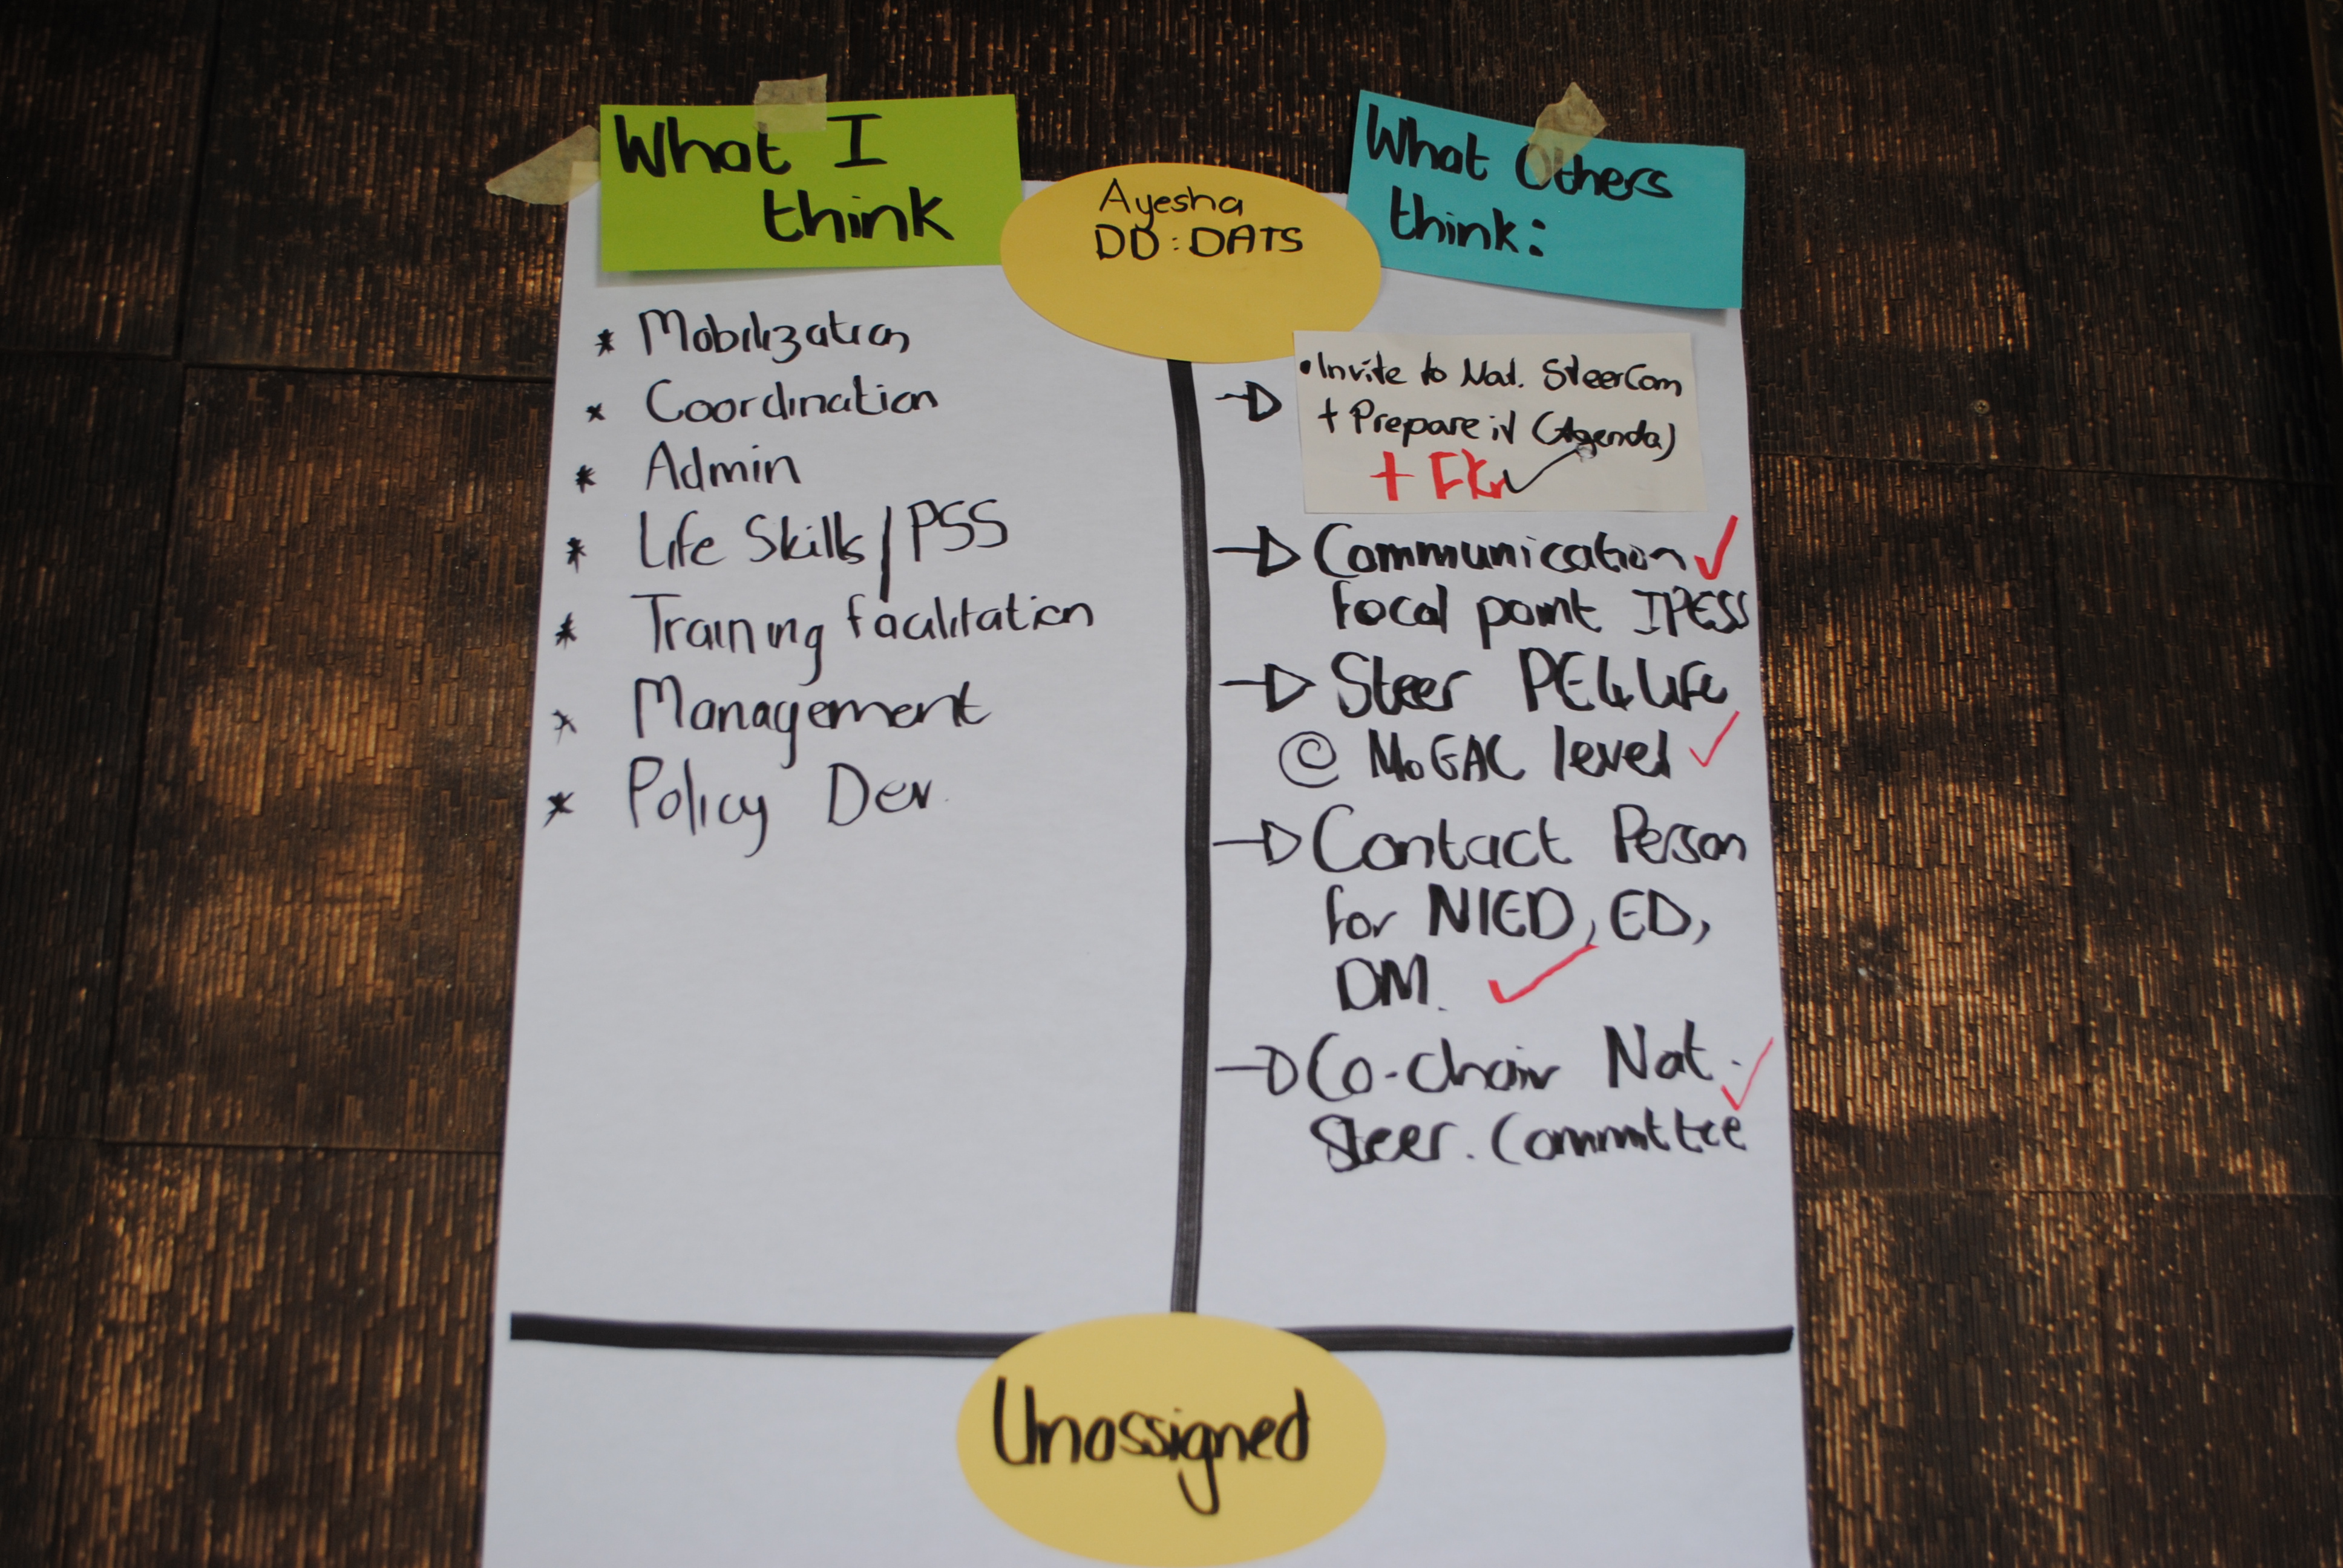 What I
think
Ayesha
DD: DATS
What Others
think:
* Mobilization
* Coordination
* Admin
* Life Skills / PSS
* Training facilitation
* Management
* Policy Dev.
• Invite to Nat. SteerCom
+ Prepare it (Agenda)
+
Communication ✓
focal point IPESS
Steer PE4Life
@ MoEAC level ✓
Contact Person
for NIED, ED,
DM. ✓
Co-chair Nat. ✓
Steer. Committee
Unassigned